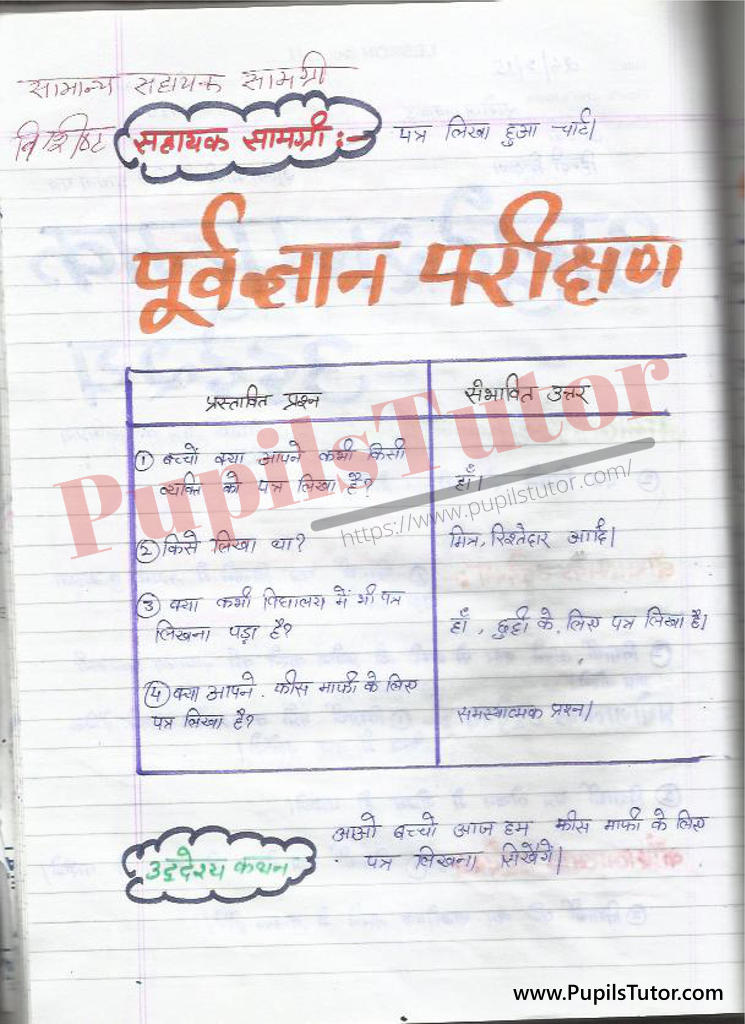 सामान्य सहायक सामग्री
विशिष्ट सहायक सामग्री :- पत्र लिखा हुआ चार्ट।
पूर्वज्ञान परीक्षण
प्रस्तावित प्रश्न संभावित उत्तर
① बच्चों क्या आपने कभी किसी
व्यक्ति को पत्र लिखा है? हाँ।
② किसे लिखा था? मित्र, रिश्तेदार आदि।
③ क्या कभी विद्यालय में भी पत्र
लिखना पड़ा है? हाँ, छुट्टी के लिए पत्र लिखा है।
④ क्या आपने फीस माफी के लिए
पत्र लिखा है? समस्यात्मक प्रश्न।
PupilsTutor
https://www.pupilstutor.com/
उद्देश्य कथन आओ बच्चो आज हम फीस माफी के लिए
पत्र लिखना सिखेंगें।
www.PupilsTutor.com